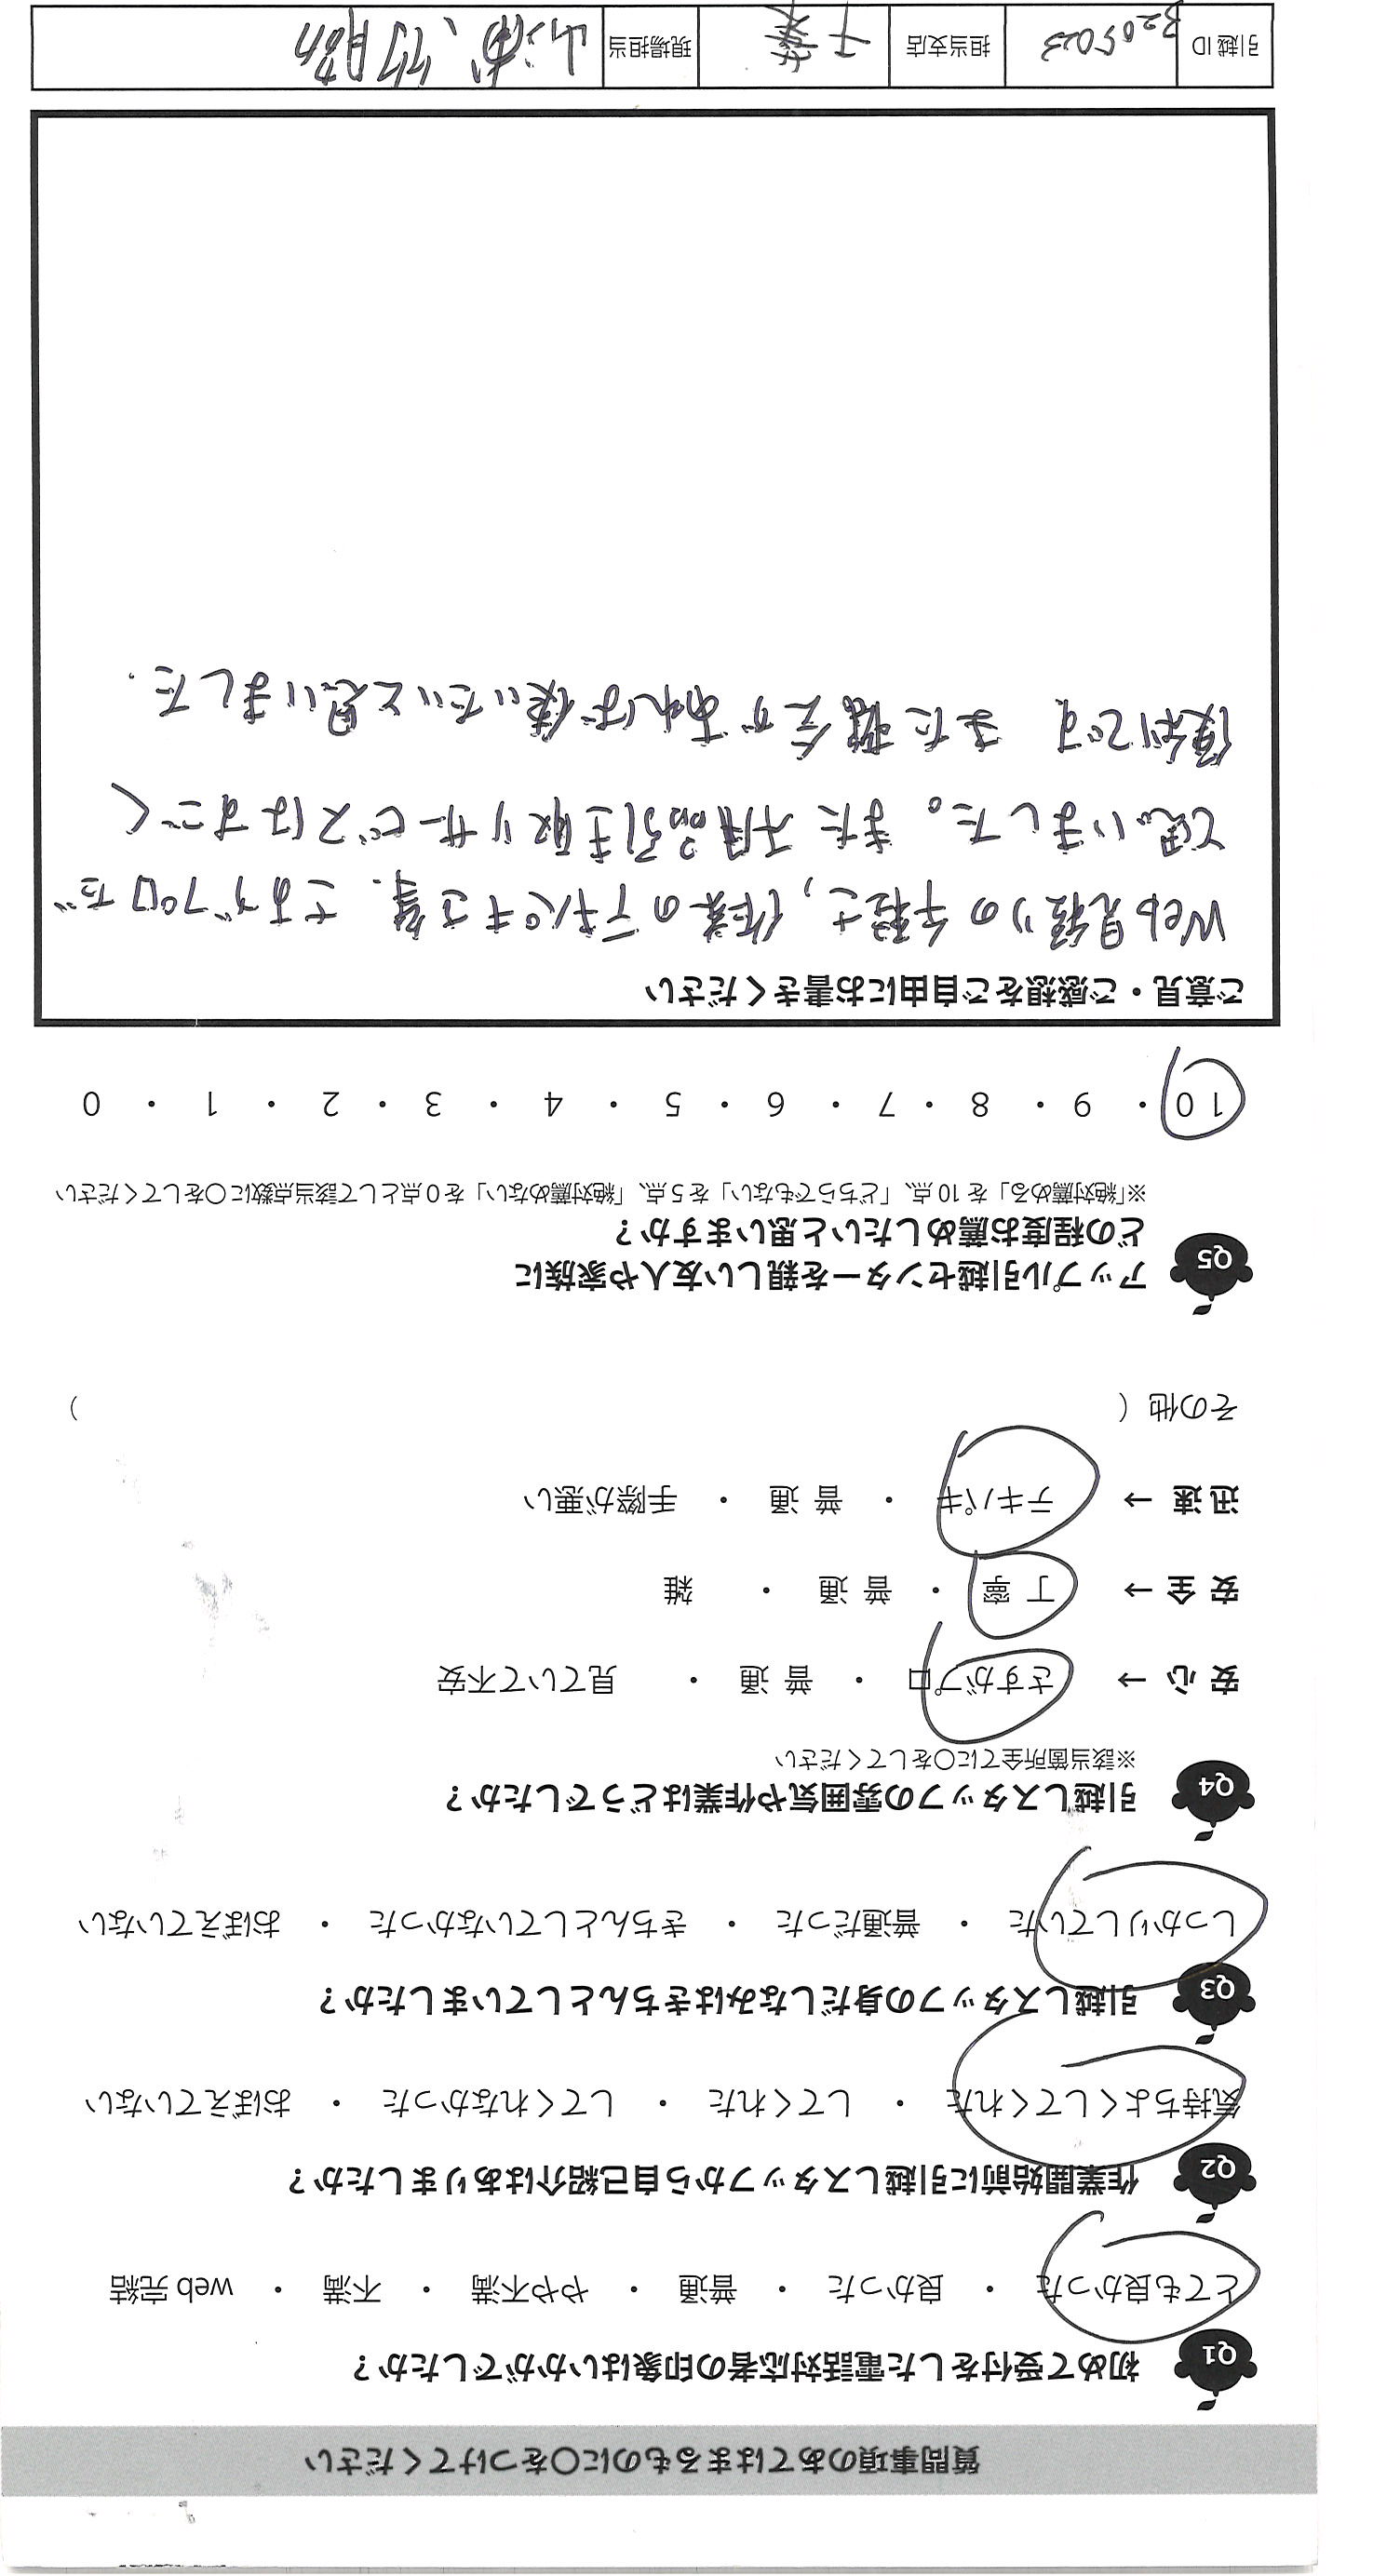 質問事項のあてはまるものに〇をつけてください
Q1 初めて受付をした電話対応者の印象はいかがでしたか？
とても良かった ・ 良かった ・ 普通 ・ やや不満 ・ 不満 ・ web 完結
Q2 作業開始前に引越しスタッフから自己紹介はありましたか？
気持ちよくしてくれた ・ してくれた ・ してくれなかった ・ おぼえていない
Q3 引越しスタッフの身だしなみはきちんとしていましたか？
しっかりしていた ・ 普通だった ・ きちんとしていなかった ・ おぼえていない
Q4 引越しスタッフの雰囲気や作業はどうでしたか？
※該当箇所全てに〇をしてください
安 心 → さすがプロ ・ 普 通 ・ 見ていて不安
安 全 → 丁 寧 ・ 普 通 ・ 雑
迅 速 → テキパキ ・ 普 通 ・ 手際が悪い
その他（ ）
Q5 アップル引越センターを親しい友人や家族に
どの程度お薦めしたいと思いますか？
※「絶対薦める」を 10 点、「どちらでもない」を 5 点、「絶対薦めない」を 0 点として該当点数に〇をしてください
10 ・ 9 ・ 8 ・ 7 ・ 6 ・ 5 ・ 4 ・ 3 ・ 2 ・ 1 ・ 0
ご意見・ご感想をご自由にお書きください
Web見積りの手軽さ, 作業のテキパキさ等. さすがプロだ
て思いました。また不用品引き取りサービスはすごく
便利です また機会があれば使いたいと思いました.
引越 ID 3205023 担当支店 千葉 現場担当 山浦、